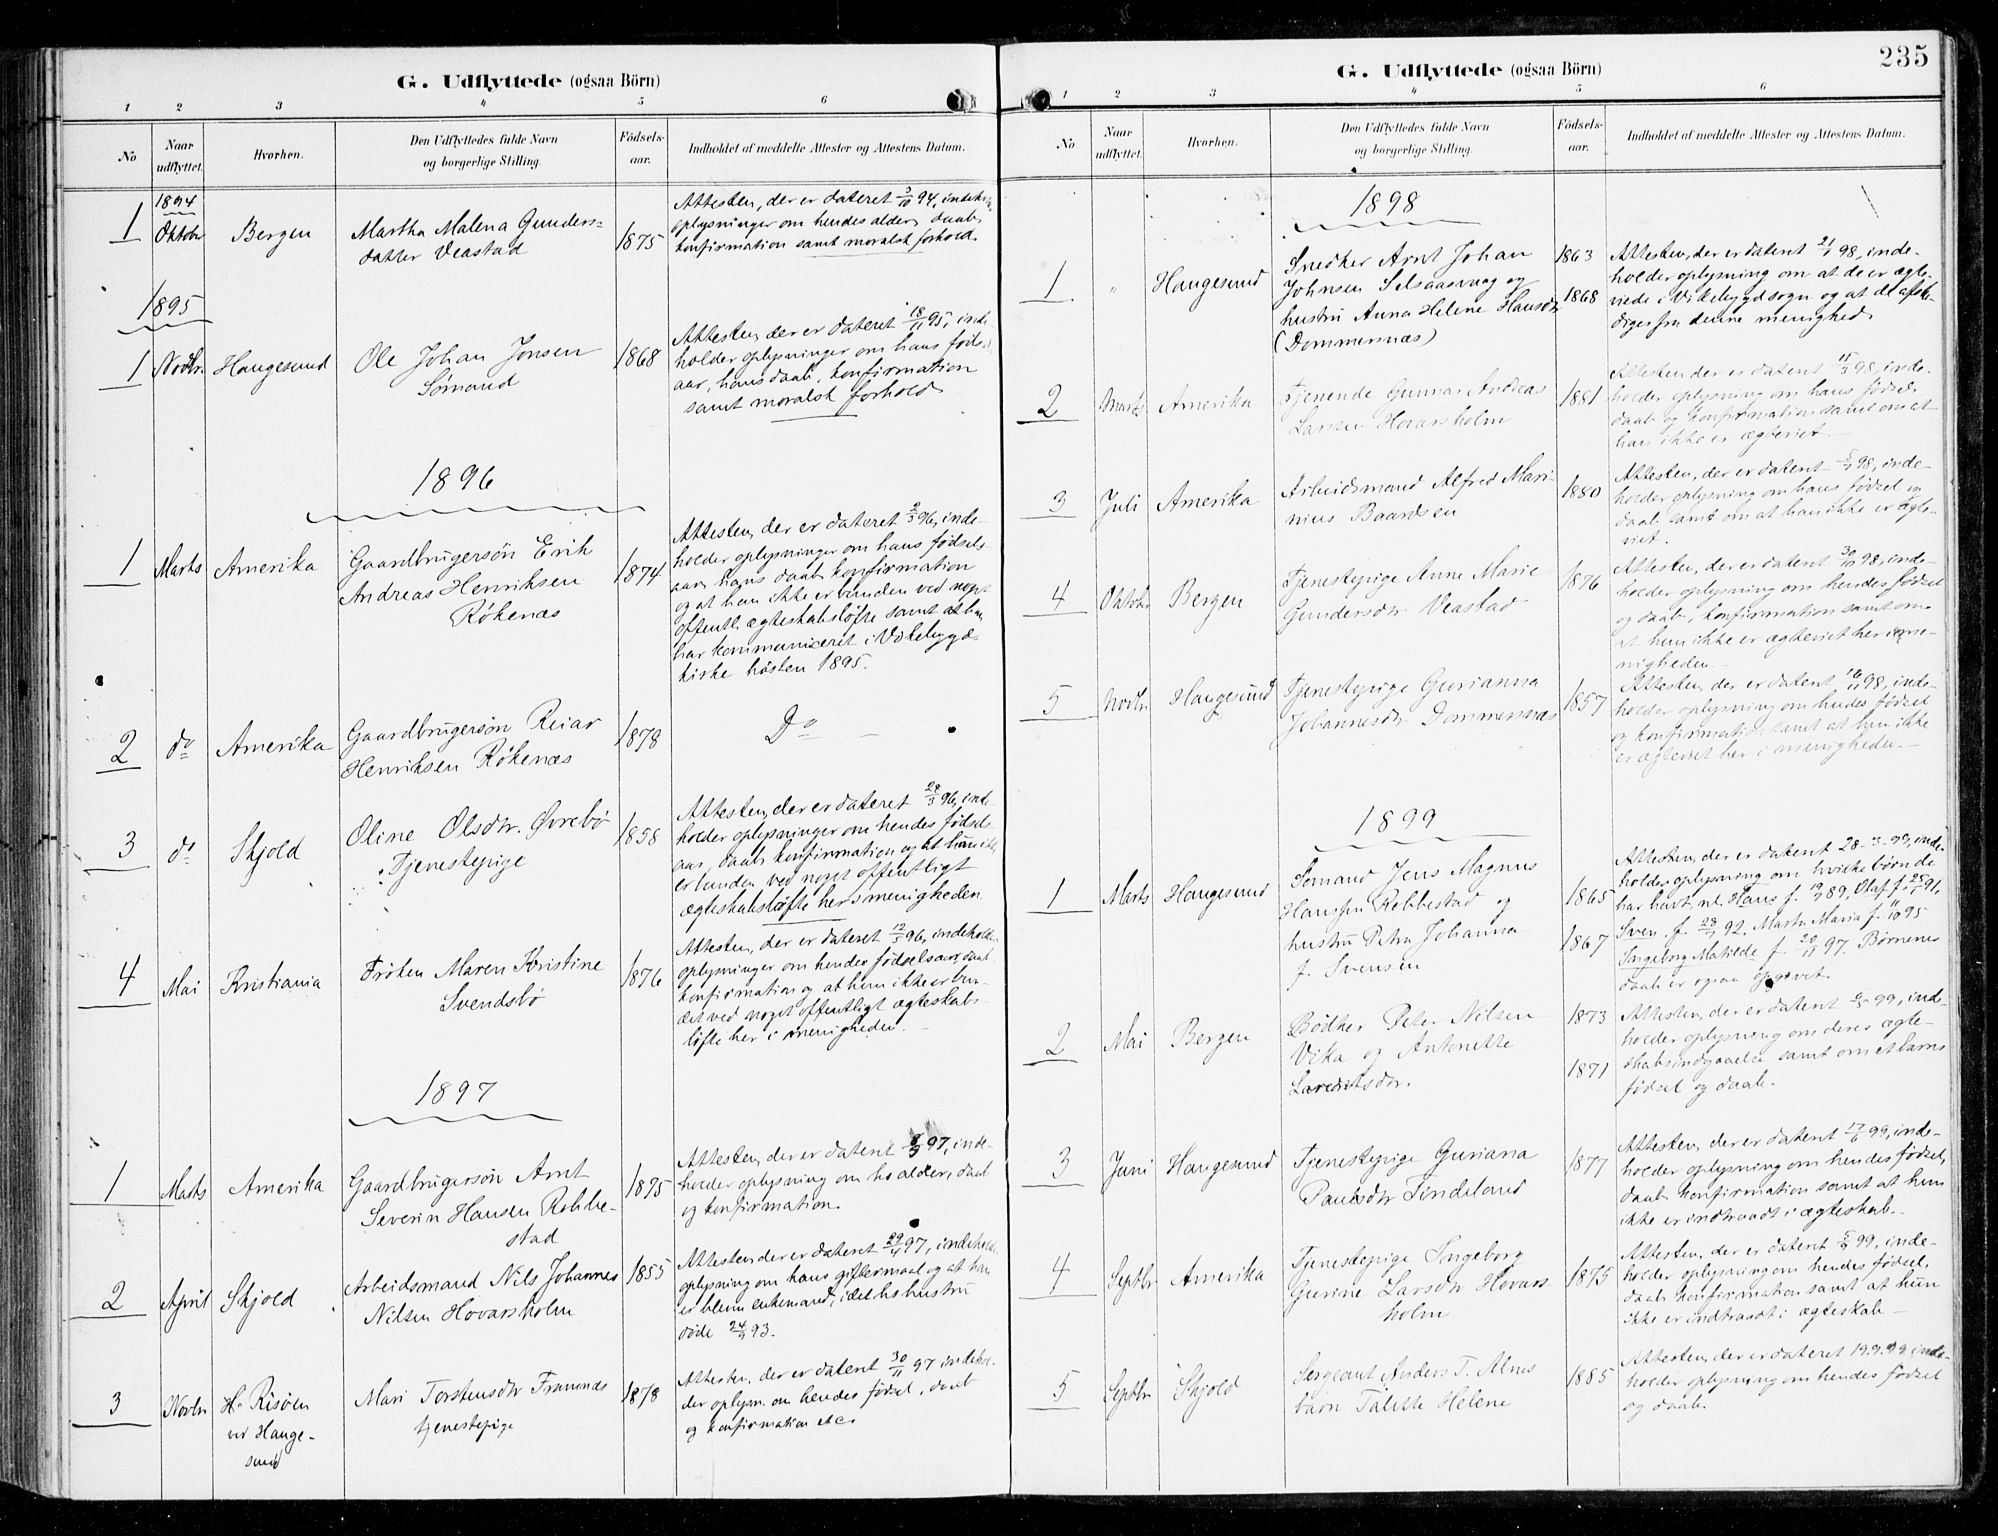 G. Udflyttede (ogsaa Börn)
1 2 3 4 5 6
No
Naar udflyttet.
Hvorhen.
Den Udflyttedes fulde Navn og borgerlige Stilling.
Födsels-aar.
Indholdet af meddelte Attester og Attestens Datum.
1894
1 Oktobr Bergen
Martha Malena Gunders-
datter Veastad
1875
Attesten, der er dateret 3/10 94,
oplysninger om hendes alder, daab,
konfirmation samt moralsk forhold.
1895
1 Novbr. Haugesund
Ole Johan Jonsen
Sømand
1868
Attesten, der er dateret 18/11 95, inde-
holder oplysninger om hans føds.
aar, hans daab, konfirmation
samt moralsk forhold.
1896
1 Marts Amerika
Gaardbrugersøn Erik
Andreas Henriksen
Røkenæs
1874
Attesten, der er dateret 2/3 96, inde-
holder oplysninger om hans fødsels-
aar, hans daab, konfirmation
og at han ikke er bunden ved noget
offentl. ægteskabsløfte samt at han
har kommuniceret i Vikebygd
kirke høsten 1895.
2 do Amerika
Gaardbrugersøn Reiar
Henriksen Røkenæs
1878
Do
3 do Skjold
Oline Olsdtr. Øvrebø
Tjenestepige
1858
Attesten, der er dateret 28/3 96, inde-
holder oplysninger om hendes fødsels
aar, daab, konfirmation og at hun ikke
er bunden ved noget offentligt
ægteskabsløfte her i menigheden.
4 Mai Kristiania
Frøken Maren Kristine
Svendsbø
1876
Attesten, der er dateret 12/5 96, indeholder
oplysninger om hendes fødselsaar, daab
konfirmation og at hun ikke er bun-
det ved noget offentligt ægteskabs-
løfte her i menigheden.
1897
1 Marts Amerika
Gaardbrugersøn Arnt
Severin Hansen Robbe-
stad
1875
Attesten, der er dateret 8/3 97, inde-
holder oplysning om hs alder, daab
og konfirmation.
2 April Skjold
Arbeidsmand Nils Johannes
Nilsen Hovarsholm
1855
Attesten, der er dateret 29/4 97, indehold.
oplysning om hans giftermaal og at han
er bleven enkemand, idet hs hustru
døde 24/9 93.
3 Novbr
H. Risøen
ved Hauge-
sund
Mari Torstensdtr Framnæs
tjenestepige
1878
Attesten, der er dateret 30/11 97 indehol-
der oplysn. om hendes fødsel, daab
og konfirmation etc.
235
G. Udflyttede (ogsaa Börn)
1 2 3 4 5 6
No
Naar udflyttet.
Hvorhen.
Den Udflyttedes fulde Navn og borgerlige Stilling.
Födsels-aar.
Indholdet af meddelte Attester og Attestens Datum.
1898
1 " Haugesund
Snedker Arnt Johan
Johnsen Selsaasvaag og
hustru Anna Helene Hansdtr
(Dommersnæs)
1863
1868
Attesten, der er dateret 21/1 98, inde-
holder oplysning om at de er ægte-
viede i Vikebygd sogn og at de afske-
diges fra denne menighed.
2 Marts Amerika
Tjenende Gunnar Andreas
Larsen Hovarsholm
1881
Attesten, der er dateret 15/3 98, inde-
holder oplysning om hans fødsel
daab og konfirmation samt om at
han ikke er ægteviet.
3 Juli Amerika
Arbeidsmand Alfred Mari-
nius Baardsen
1880
Attesten, der er dateret 5/7 98, inde-
holder oplysning om hans fødsel og
daab samt om at han ikke er ægte-
viet.
4 Oktobr Bergen
Tjenestepige Anne Marie
Gundersdtr Veastad
1876
Attesten, der er dateret 30/10 98, inde-
holder oplysning om hendes fødsel
og daab, konfirmation samt om
at hun ikke er ægteviet her i me-
nigheden.
5 Novbr Haugesund
Tjenestepige Gurianna
Johannesdtr Dommersnæs
1857
Attesten, der er dateret 16/11 98, inde-
holder oplysning om hendes fødsel
og konfirmation samt at hun ikke
er ægteviet her i menigheden.
1899
1 Marts Haugesund
Sømand Jens Magnus
Hanssen Robbestad og
hustru Petra Johanna
f. Svensen
1865
1867
Attesten, der er dateret 28-3-99, inde-
holder oplysning om hvilke børn de
har havt, nl. Hans f. 19/9 89, Olaf f. 25/1 91,
Sven f. 28/7 92, Marta Maria f. 11/10 95
Ingeborg Matilde f. 20/11 97. Børnenes
daab er ogsaa opgivet.
2 Mai Bergen
Bødker Peter Nilsen
Vika og Antonette
Lareditsdtr.
1873
1871
Attesten, der er dateret 99, inde-
holder oplysning om deres ægte-
skabsindgaaelse samt om et barns
fødsel og daab.
3 Juni Haugesund
Tjenestepige Guriana
Paulsdtr Tindeland
1877
Attesten, der er dateret 17/6 99, inde-
holder oplysning om hendes fødsel,
daab, konfirmation samt at hun
ikke er indtraadt i ægteskab.
4 Septbr Amerika
Tjenestepige Ingeborg
Gurine Larsdtr Hovars
holm
1875
Attesten, der er dateret 5/9 99, inde-
holder oplysning om hendes fødsel,
daab, konfirmation samt at hun
ikke er indtraadt i ægteskab.
5 Septbr Skjold
Sergeant Anders T. Alnes
barn Talette Helene
1885
Attesten, der er dateret 19.9.99 inde-
holder oplysning om hendes fødsel
og daab.